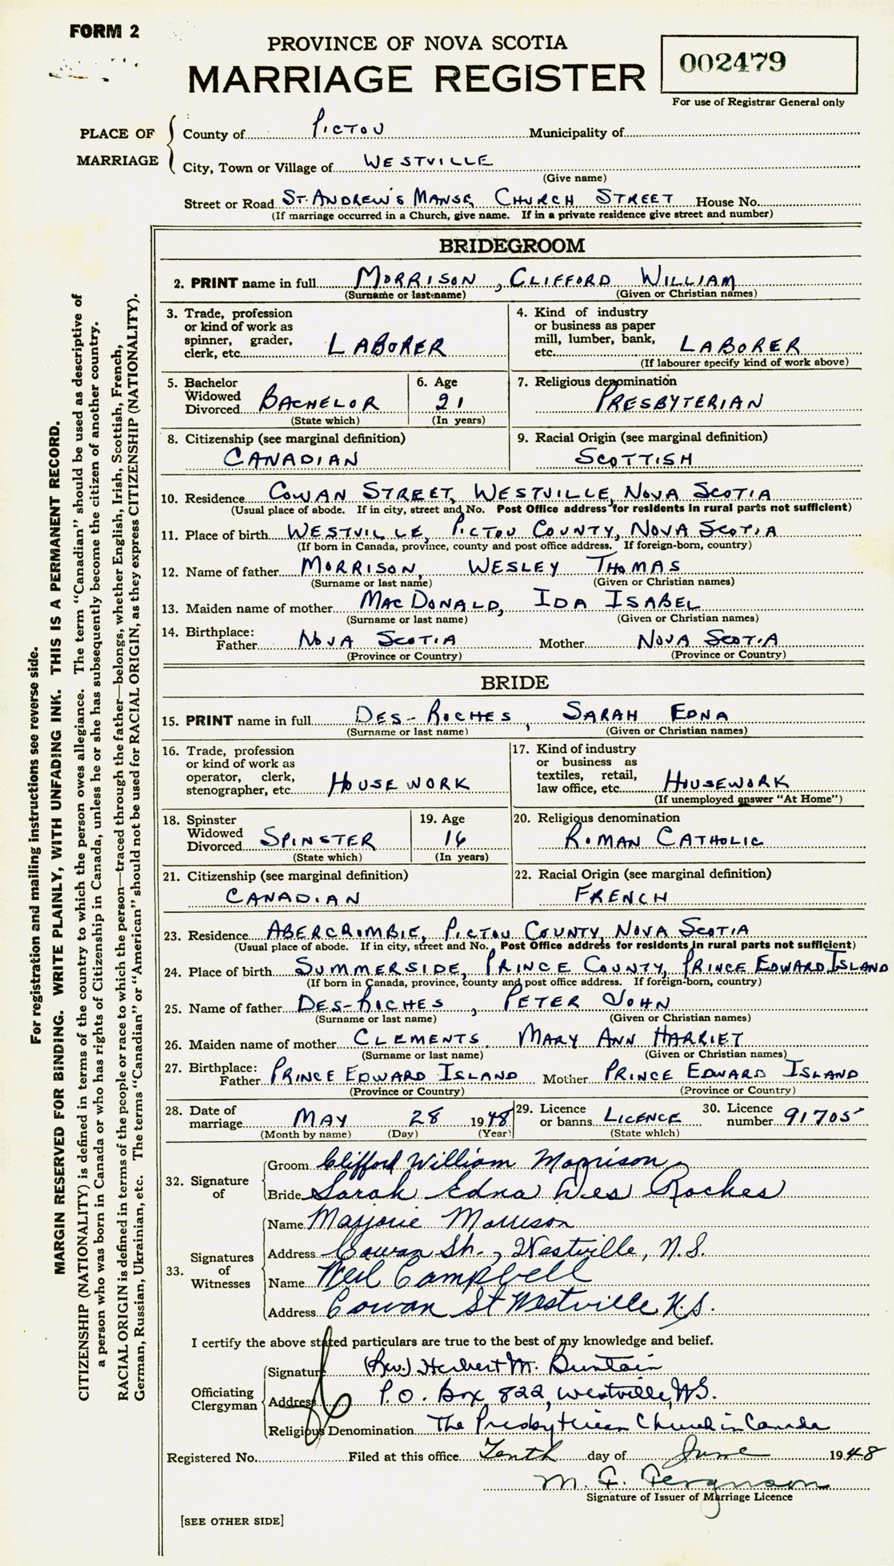 FORM 2
PROVINCE OF NOVA SCOTIA
MARRIAGE REGISTER
002479
For use of Registrar General only
PLACE OF MARRIAGE
County of PICTOU Municipality of
City, Town or Village of WESTVILLE
(Give name)
Street or Road ST. ANDREW'S MANSE CHURCH STREET House No.
(If marriage occurred in a Church, give name. If in a private residence give street and number)
BRIDEGROOM
2. PRINT name in full MORRISON, CLIFFORD WILLIAM
(Surname or last name) (Given or Christian names)
3. Trade, profession or kind of work as spinner, grader, clerk, etc. LABORER
4. Kind of industry or business as paper mill, lumber, bank, etc. LABORER
(If labourer specify kind of work above)
5. Bachelor Widowed Divorced BACHELOR
(State which)
6. Age 21
(In years)
7. Religious denomination PRESBYTERIAN
8. Citizenship (see marginal definition)
CANADIAN
9. Racial Origin (see marginal definition)
SCOTTISH
10. Residence COWAN STREET, WESTVILLE, NOVA SCOTIA
(Usual place of abode. If in city, street and No. Post Office address for residents in rural parts not sufficient)
11. Place of birth WESTVILLE, PICTOU COUNTY, NOVA SCOTIA
(If born in Canada, province, county and post office address. If foreign-born, country)
12. Name of father MORRISON, WESLEY THOMAS
(Surname or last name) (Given or Christian names)
13. Maiden name of mother MACDONALD, IDA ISABEL
(Surname or last name) (Given or Christian names)
14. Birthplace: Father NOVA SCOTIA Mother NOVA SCOTIA
(Province or Country) (Province or Country)
BRIDE
15. PRINT name in full DES-ROCHES, SARAH EDNA
(Surname or last name) (Given or Christian names)
16. Trade, profession or kind of work as operator, clerk, stenographer, etc. HOUSEWORK
17. Kind of industry or business as textiles, retail, law office, etc. HOUSEWORK
(If unemployed answer "At Home")
18. Spinster Widowed Divorced SPINSTER
(State which)
19. Age 16
(In years)
20. Religious denomination
ROMAN CATHOLIC
21. Citizenship (see marginal definition)
CANADIAN
22. Racial Origin (see marginal definition)
FRENCH
23. Residence ABERCROMBIE, PICTOU COUNTY, NOVA SCOTIA
(Usual place of abode. If in city, street and No. Post Office address for residents in rural parts not sufficient)
24. Place of birth SUMMERSIDE, PRINCE COUNTY, PRINCE EDWARD ISLAND
(If born in Canada, province, county and post office address. If foreign-born, country)
25. Name of father DES-ROCHES, PETER JOHN
(Surname or last name) (Given or Christian names)
26. Maiden name of mother CLEMENTS, MARY ANN HARRIET
(Surname or last name) (Given or Christian names)
27. Birthplace: Father PRINCE EDWARD ISLAND Mother PRINCE EDWARD ISLAND
(Province or Country) (Province or Country)
28. Date of marriage MAY 28 1948
(Month by name) (Day) (Year)
29. Licence or banns LICENCE
(State which)
30. Licence number 91705
32. Signature of
Groom Clifford William Morrison
Bride Sarah Edna Des Roches
33. Signatures of Witnesses
Name Marjorie Morrison
Address Cowan St., Westville, N.S.
Name Neil Campbell
Address Cowan St Westville N.S.
I certify the above stated particulars are true to the best of my knowledge and belief.
Officiating Clergyman
Signature (Rev.) Herbert M. Buntain
Address P.O. Box 822, Westville, N.S.
Religious Denomination The Presbyterian Church in Canada
Registered No. Filed at this office Tenth day of June 1948
M. F. Ferguson
Signature of Issuer of Marriage Licence
[SEE OTHER SIDE]
For registration and mailing instructions see reverse side.
MARGIN RESERVED FOR BINDING. WRITE PLAINLY, WITH UNFADING INK. THIS IS A PERMANENT RECORD.
CITIZENSHIP (NATIONALITY) is defined in terms of the country to which the person owes allegiance. The term "Canadian" should be used as descriptive of
a person who was born in Canada or who has rights of Citizenship in Canada, unless he or she has subsequently become the citizen of another country.
RACIAL ORIGIN is defined in terms of the people or race to which the person—traced through the father—belongs, whether English, Irish, Scottish, French,
German, Russian, Ukrainian, etc. The terms "Canadian" or "American" should not be used for RACIAL ORIGIN, as they express CITIZENSHIP (NATIONALITY).